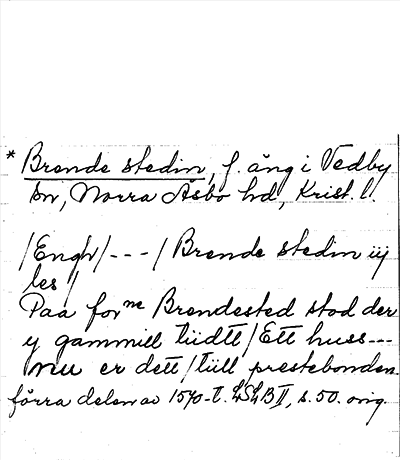 * Brende stedin, f. äng i Vedby
sn, Norra Åsbo hd, Krist. l.
/Engh/---/Brende stedin iij
les//
Paa forne Brendested stod der
y gammill tiidtt/Ett huss---
nu er dett/tiill prestebonden.
förra delen av 1570-t. LSLB II, s. 50. orig.